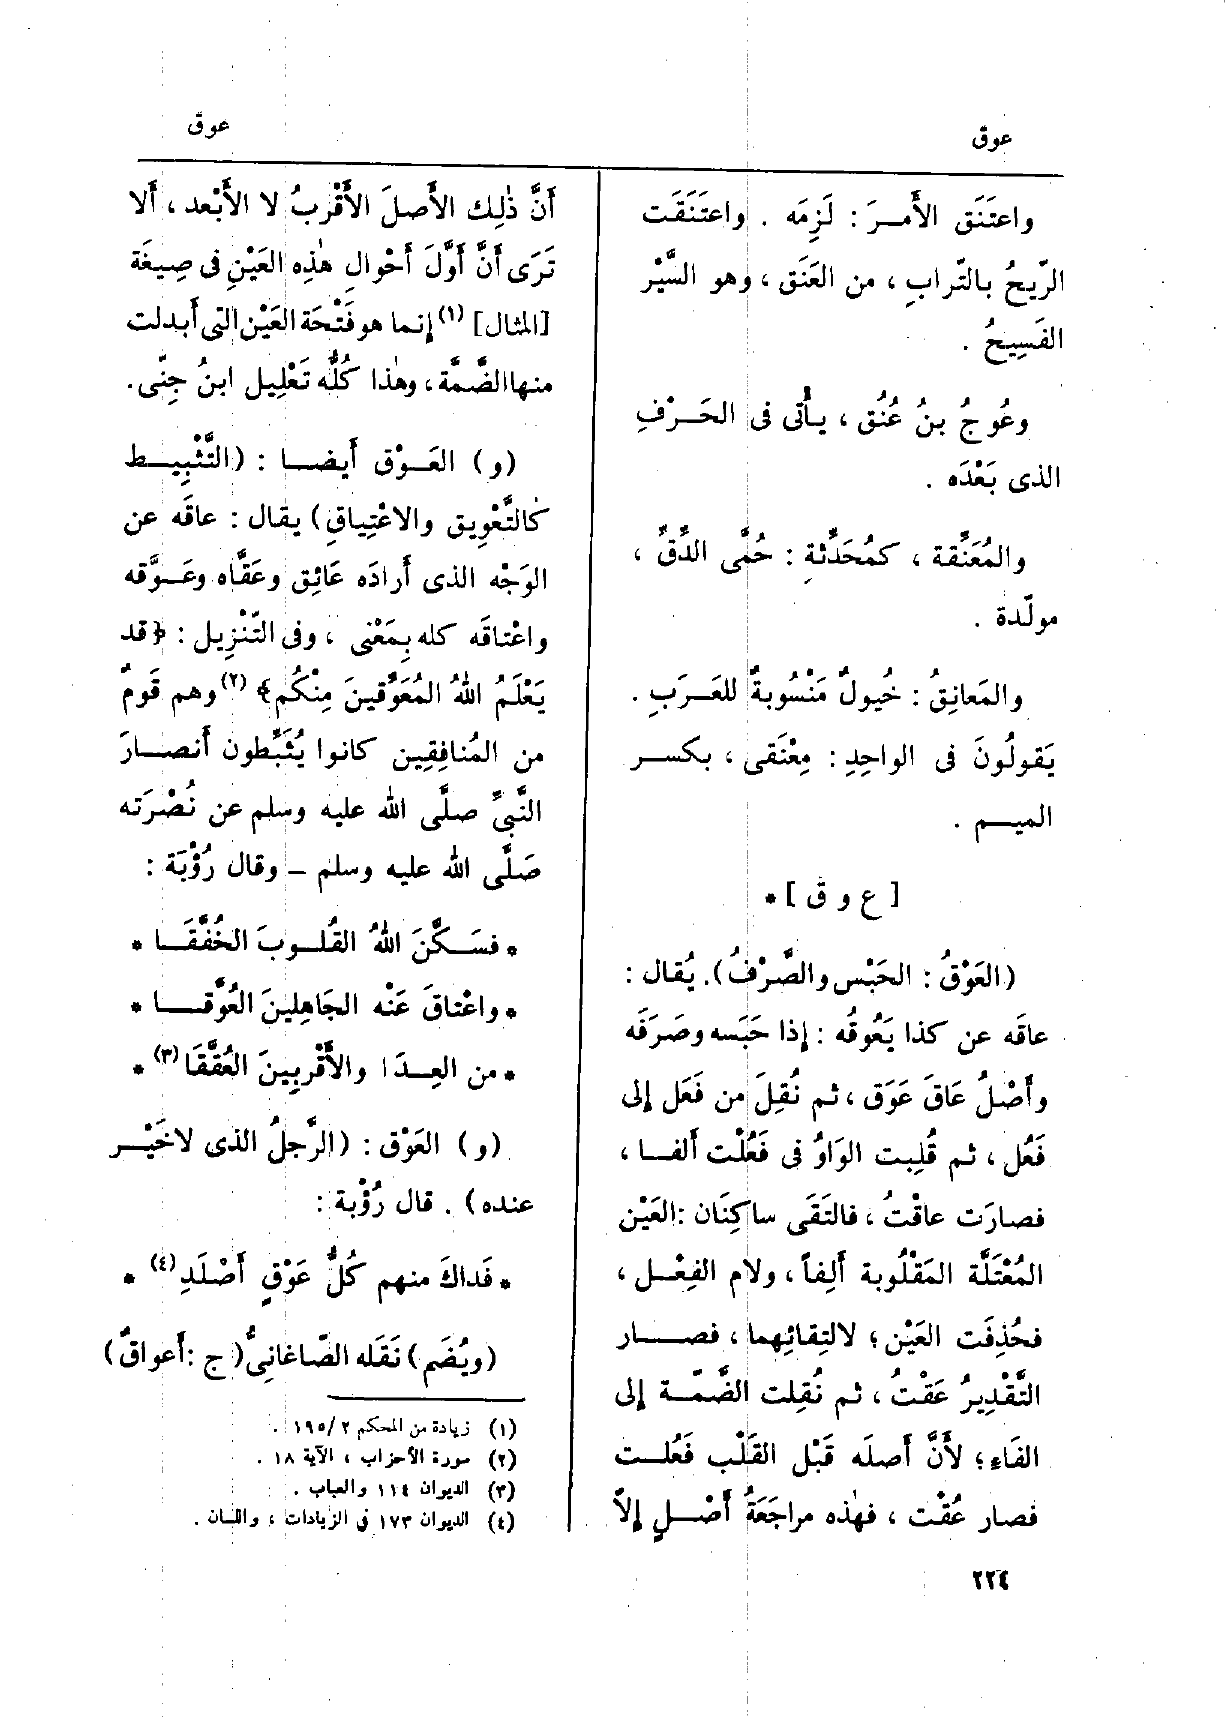 عوق
عوق
واعتَنَق الأَمرَ : لَزِمَه . واعتَنَقَت
الرِّيحُ بالتّرابِ ، من العَنَق ، وهو السَّيْر
الفَسِيحُ .
وعُوجُ بنُ عُنُق ، يأْتى فى الحَرْفِ
الذى بَعْدَه .
والمُعَنِّقة ، كمُحَدِّثةٍ : حُمَّى الدِّقِّ ،
مولّدة .
والمَعانِقُ : خُيولٌ مَنْسُوبةٌ للعَرَبِ .
يَقولُونَ فى الواحِدِ : مِعْنَقى ، بكسر
الميم .
[ ع و ق ] *
(العَوْقُ : الحَبْس والصَّرْفُ). يُقال :
عاقَه عن كذا يَعُوقُه : إذا حَبَسه وصَرَفَه
وأَصْلُ عَاقَ عَوَق ، ثم نُقِلَ من فَعَل إلى
فَعُل ، ثم قُلِبت الوَاوُ فى فَعُلْت أَلفا ،
فصارَت عاقْتُ ، فالتَقَى ساكِنَان : العَيْن
المُعْتَلَّة المَقْلُوبة أَلِفاً ، ولام الفِعْل ،
فحُذِفَت العَيْن ؛ لالتِقائِهما ، فصار
التَّقْدِيرُ عَقْتُ ، ثم نُقِلت الضَّمّة إلى
الفَاءِ ؛ لأَنَّ أَصلَه قَبْل القَلْب فَعُلت
فصار عُقْت ، فهٰذه مراجَعَةُ أَصْلٍ إلاّ
أَنَّ ذٰلِك الأَصلَ الأَقْربُ لا الأَبْعد ، أَلا
تَرَى أَنَّ أَوَّلَ أَحْوالِ هٰذِه العَيْنِ فى صِيغَة
[المثال] (١) إنما هو فَتْحَة العَيْن التى أُبدلت
منها الضَّمَّة ، وهٰذا كُلُّه تَعْلِيل ابنُ جِنِّى .
(و) العَوْق أَيضا : (التَّثْبِيط
كالتَّعْوِيق والاعْتِياقِ) يقال : عاقَه عن
الوَجْه الذى أَرادَه عَائِق وعَقَّاه وعَوَّقه
واعْتاقَه كله بِمَعْنى ، وفى التَّنْزِيل : ﴿ قد
يَعْلَمُ اللهُ المُعَوِّقينَ مِنْكُم ﴾ (٢) وهم قَومٌ
من المُنافِقِين كانوا يُثَبِّطون أَنصارَ
النَّبِىِّ صلَّى الله عليه وسلم عن نُصْرَته
صَلَّى الله عليه وسلم – وقال رُؤْبَة :
* فسَكَّنَ اللهُ القُلوبَ الخُفَّقَا *
* واعْتاقَ عَنْه الجَاهِلِينَ العُوَّقا *
* من العِدَا والأَقْرِبِينَ العُقَّقَا (٣) *
(و) العَوْق : (الرَّجلُ الذى لا خَيْر
عنده) . قال رُؤْبة :
* فَداكَ منهم كُلُّ عَوْقٍ أَصْلَدِ (٤) *
(ويُضَم) نَقَله الصّاغانِىُّ (ج : أَعواقٌ)
(١) زيادة من المحكم ٢/١٩٥ .
(٢) سورة الأحزاب ، الآية ١٨ .
(٣) الديوان ١١٤ والعباب .
(٤) الديوان ١٧٣ فى الزيادات ، واللسان .
٢٢٤